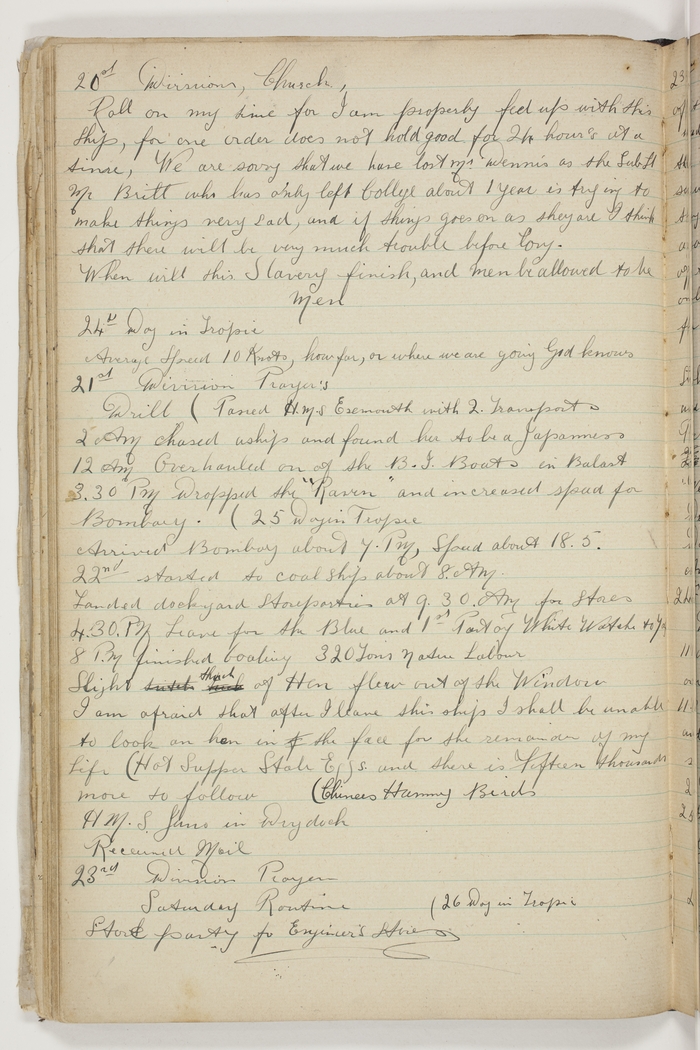 20st Divisions, Church,
Roll on my time for I am properly fed up with this
ship, for one order does not hold good for 24 hours at a
time, We are sorry that we have lost Mr Dennis as the Sub Lt
Mr Britt who has only left College about 1 year is trying to
make things very sad, and if things goes on as they are I think
that there will be very much trouble before long.
When will this Slavery finish, and men be allowed to be
Men
24th Day in Tropic
Average Speed 10 Knots, how far, or where we are going God knows
21st Division Prayer's
Drill ( Passed H.M.S Exemouth with 2. Transports
2 AM chased a ships and found her to be a Japanness
12 AM Overhauled on of the B. I. Boats in Balast
3.30 PM Dropped the "Raven" and increased speed for
Bombay. ( 25 Day in Tropic
Arrived Bombay about 7. PM, Speed about 18.5.
22nd started to coal ship about 8. AM.
Landed dockyard Storeparties at 9.30. AM for Stores
4.30. PM Leave for the Blue and 1st Part of White Watche to 7
8 PM finished coaling 320 Tons Native Labour
Slight thick of Hen flew out of the Window
I am afraid that after I leave this ship I shall be unable
to look an hen in the face for the remainder of my
Life (Hot Supper Stale Eggs. and there is Fifteen thousands
more to follow (Chinees Humming Birds
H.M.S. Juno in Drydock
Received Mail
23rd Division Prayers
Saturday Routine (26 Day in Tropic
Store party for Engineer's Stores